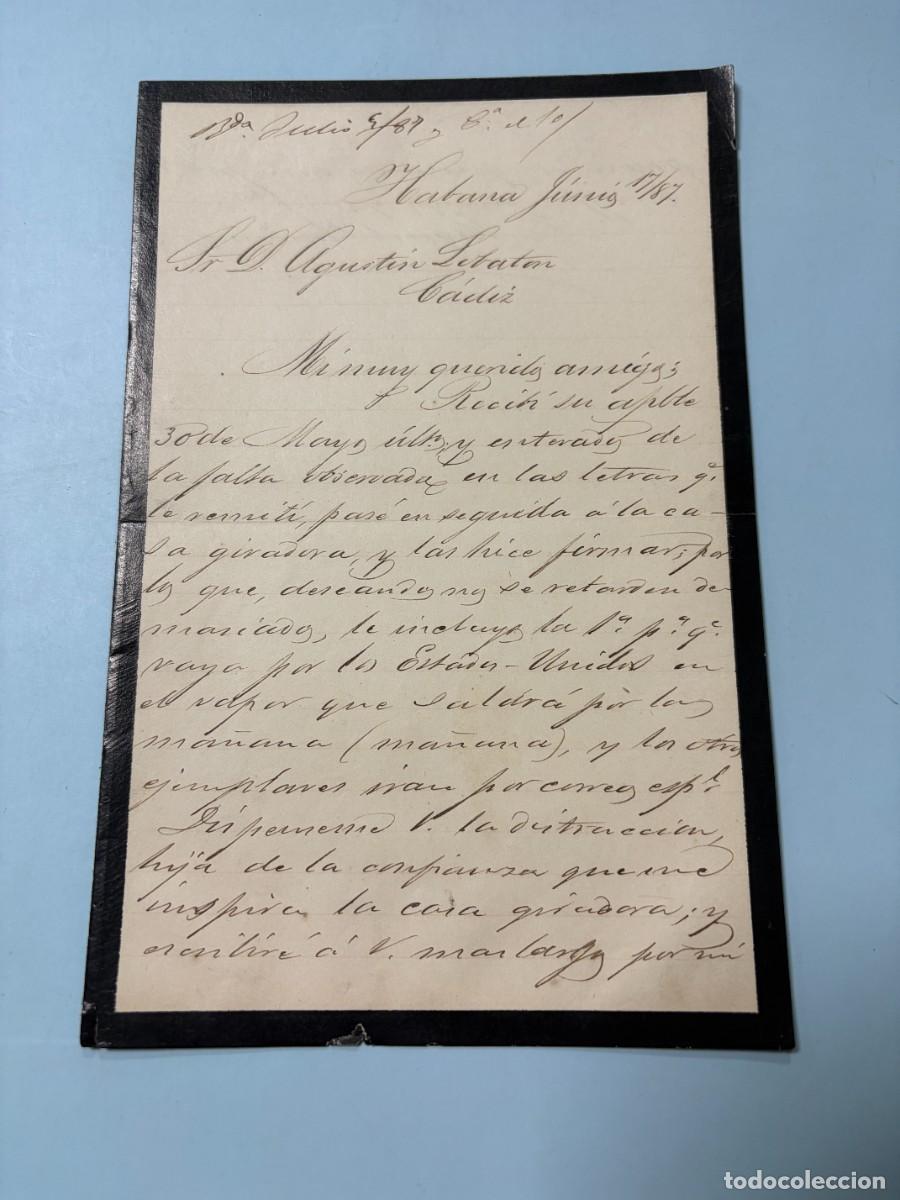 Rda. Julio 5/87 y C.a el 10/
Habana Júnio 17/87.
Sr D. Agustín Lebaton
Cádiz
Mi muy querido amigo;
Recibí su apble
30 de Mayo últo, y enterado de
la falta observada en las letras q.e
le remití, pasé en seguida á la ca-
sa giradora, y las hice firmar; por
lo que, deseando no se retarden de
masiado, le incluyo la 1.a p.a q.e
vaya por los Estados-Unidos en
el vapor que saldrá por la
mañana (mañana), y los otros
ejemplares iran por correo esp.l
Dispenseme V. la distraccion,
hija de la confianza que me
inspira la casa giradora; y
escribiré á V. mas largo por mi
todocoleccion